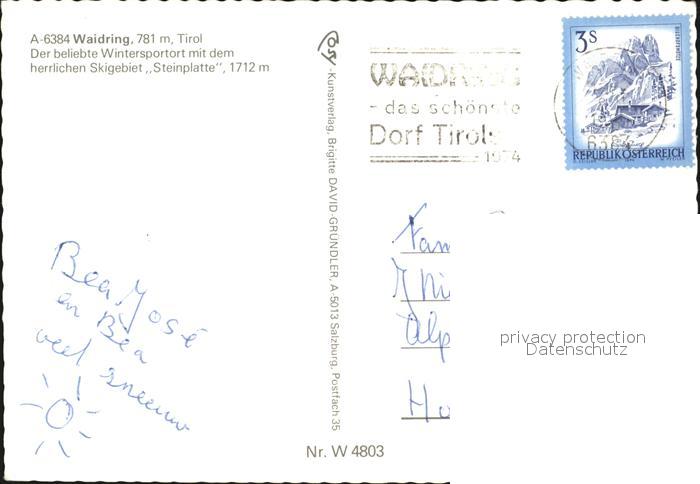 A-6384 Waidring, 781 m, Tirol
Der beliebte Wintersportort mit dem
herrlichen Skigebiet ,,Steinplatte", 1712 m
Bea, José
en Bea
veel sneeuw
-Kunstverlag, Brigitte DAVID-GRÜNDLER, A-5013 Salzburg, Postfach 35
Nr. W 4803
WAIDRING
- das schönste
Dorf Tirols
1974
3S
REPUBLIK ÖSTERREICH
6384
Fam
Alp
Ho
privacy protection
Datenschutz